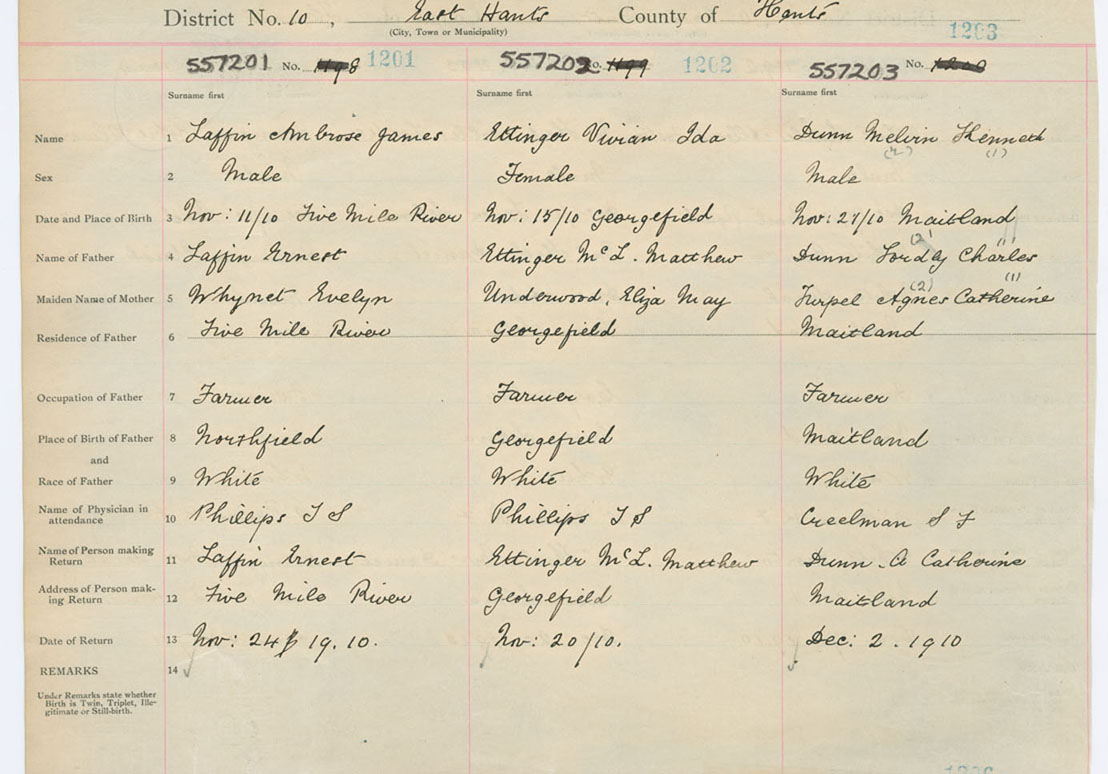 District No. 10 , East Hants County of Hants
(City, Town or Municipality)
1203
557201 No. 1198 1201 557202 No. 1199 1202 557203 No. 1200
Surname first Surname first Surname first
Name 1 Laffin Ambrose James Ettinger Vivian Ida Dunn Melvin Kenneth
(2) (1)
Sex 2 Male Female Male
Date and Place of Birth 3 Nov: 11/10 Five Mile River Nov: 15/10 Georgefield Nov: 27/10 Maitland
(2) (1)
Name of Father 4 Laffin Ernest Ettinger McL. Matthew Dunn Charles
(2) (1)
Maiden Name of Mother 5 Whynot Evelyn Underwood, Eliza May Turpel Agnes Catherine
Residence of Father 6 Five Mile River Georgefield Maitland
Occupation of Father 7 Farmer Farmer Farmer
Place of Birth of Father 8 Northfield Georgefield Maitland
and
Race of Father 9 White White White
Name of Physician in
attendance 10 Phillips T S Phillips T S Creelman S F
Name of Person making
Return 11 Laffin Ernest Ettinger McL. Matthew Dunn A Catherine
Address of Person mak-
ing Return 12 Five Mile River Georgefield Maitland
Date of Return 13 Nov: 24 19.10. Nov: 20/10. Dec: 2. 1910
REMARKS 14
Under Remarks state whether
Birth is Twin, Triplet, Ille-
gitimate or Still-birth.